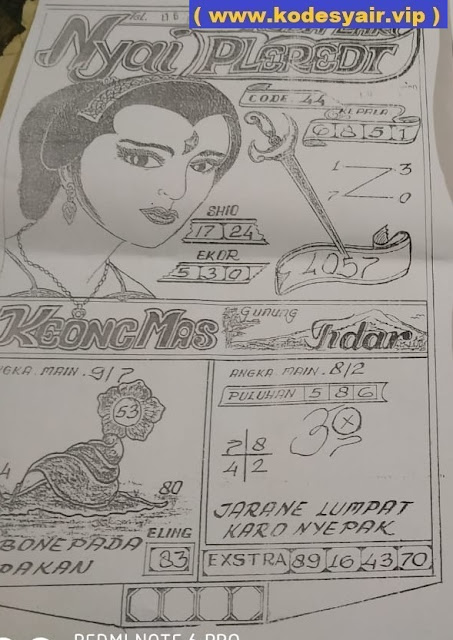 ( www.kodesyair.vip )
Nyai PLEREDT
CODE. 44
KEPALA
6 8 5 1
1 3
7 0
SHIO
17 24
EKOR
5 3 0
4057
KEONG MAS
Gunung
Tidar
ANGKA. MAIN. 9/7
53
4
80
BONE PADA
PAKAN
ELING
83
ANGKA. MAIN. 8/2
PULUHAN 5 8 6
7 8
4 2
JARANE LUMPAT
KARO NYEPAK
EXSTRA 89 16 43 70
REDMI NOTE 6 PRO